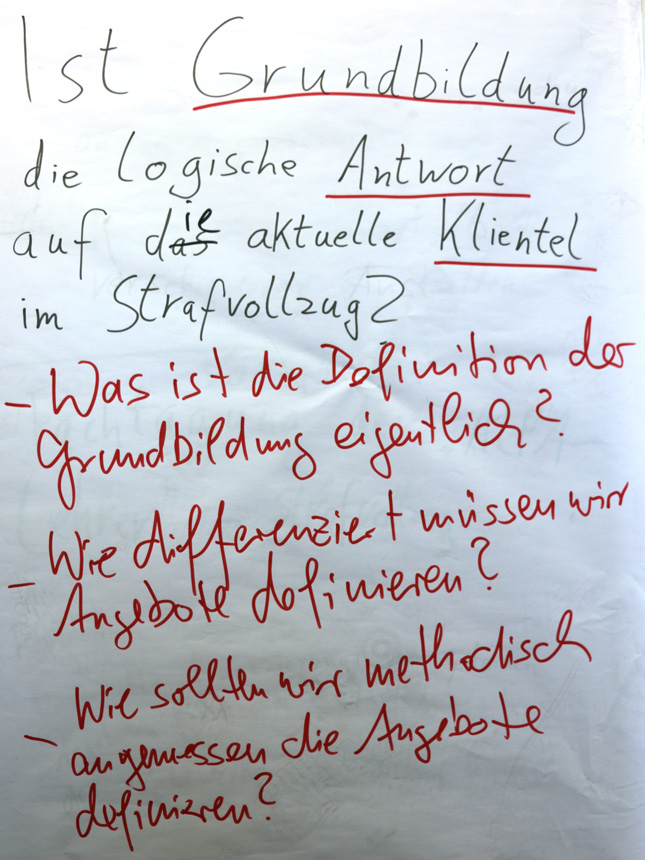 Ist Grundbildung
die logische Antwort
auf die aktuelle Klientel
im Strafvollzug?
- Was ist die Definition der
Grundbildung eigentlich?
- Wie differenziert müssen wir
Angebote definieren?
- Wie sollten wir methodisch
angemessen die Angebote
definieren?